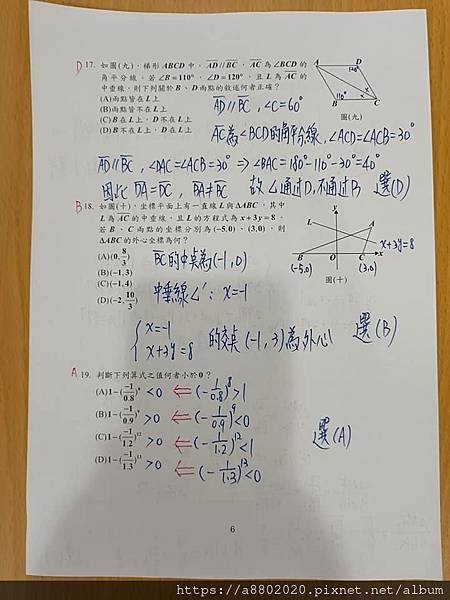 D 17. 如圖(九)，梯形ABCD中，AD//BC，AC為∠BCD的
角平分線。若∠B=110°，∠D=120°，且L為AC的
中垂線，則下列關於B、D兩點的敘述何者正確？
(A)兩點皆在L上
(B)兩點皆不在L上
(C)B在L上，D不在L上
(D)B不在L上，D在L上
A D
120°
110° x x
B C
圖(九)
AD//BC，∠C=60°
AC為∠BCD的角平分線，∠ACD=∠ACB=30°
AD//BC，∠DAC=∠ACB=30° ⇒ ∠BAC=180°-110°-30°=40°
因此 DA=DC，BA≠BC 故L通過D，不通過B 選(D)
B 18. 如圖(十)，坐標平面上有一直線L與△ABC，其中
L為AC的中垂線，且L的方程式為x+3y=8。
若B、C兩點的坐標分別為(-5,0)、(3,0)，則
△ABC的外心坐標為何？
(A)(0, 8/3)
(B)(-1,3)
(C)(-1,4)
(D)(-2, 10/3)
y
L A
x+3y=8
B C x
(-5,0) (3,0)
圖(十)
BC的中點為(-1,0)
中垂線L'：x=-1
{x=-1
x+3y=8 的交點(-1,3)為外心 選(B)
A 19. 判斷下列算式之值何者小於0？
(A)1-(-1/0.8)⁸ <0 ⇐ (-1/0.8)⁸>1
(B)1-(-1/0.9)⁹ >0 ⇐ (-1/0.9)⁹<0
(C)1-(-1/1.2)¹² >0 ⇐ (-1/1.2)¹²<1
(D)1-(-1/1.3)¹³ >0 ⇐ (-1/1.3)¹³<0
選(A)
6
https://a8802020.pixnet.net/album